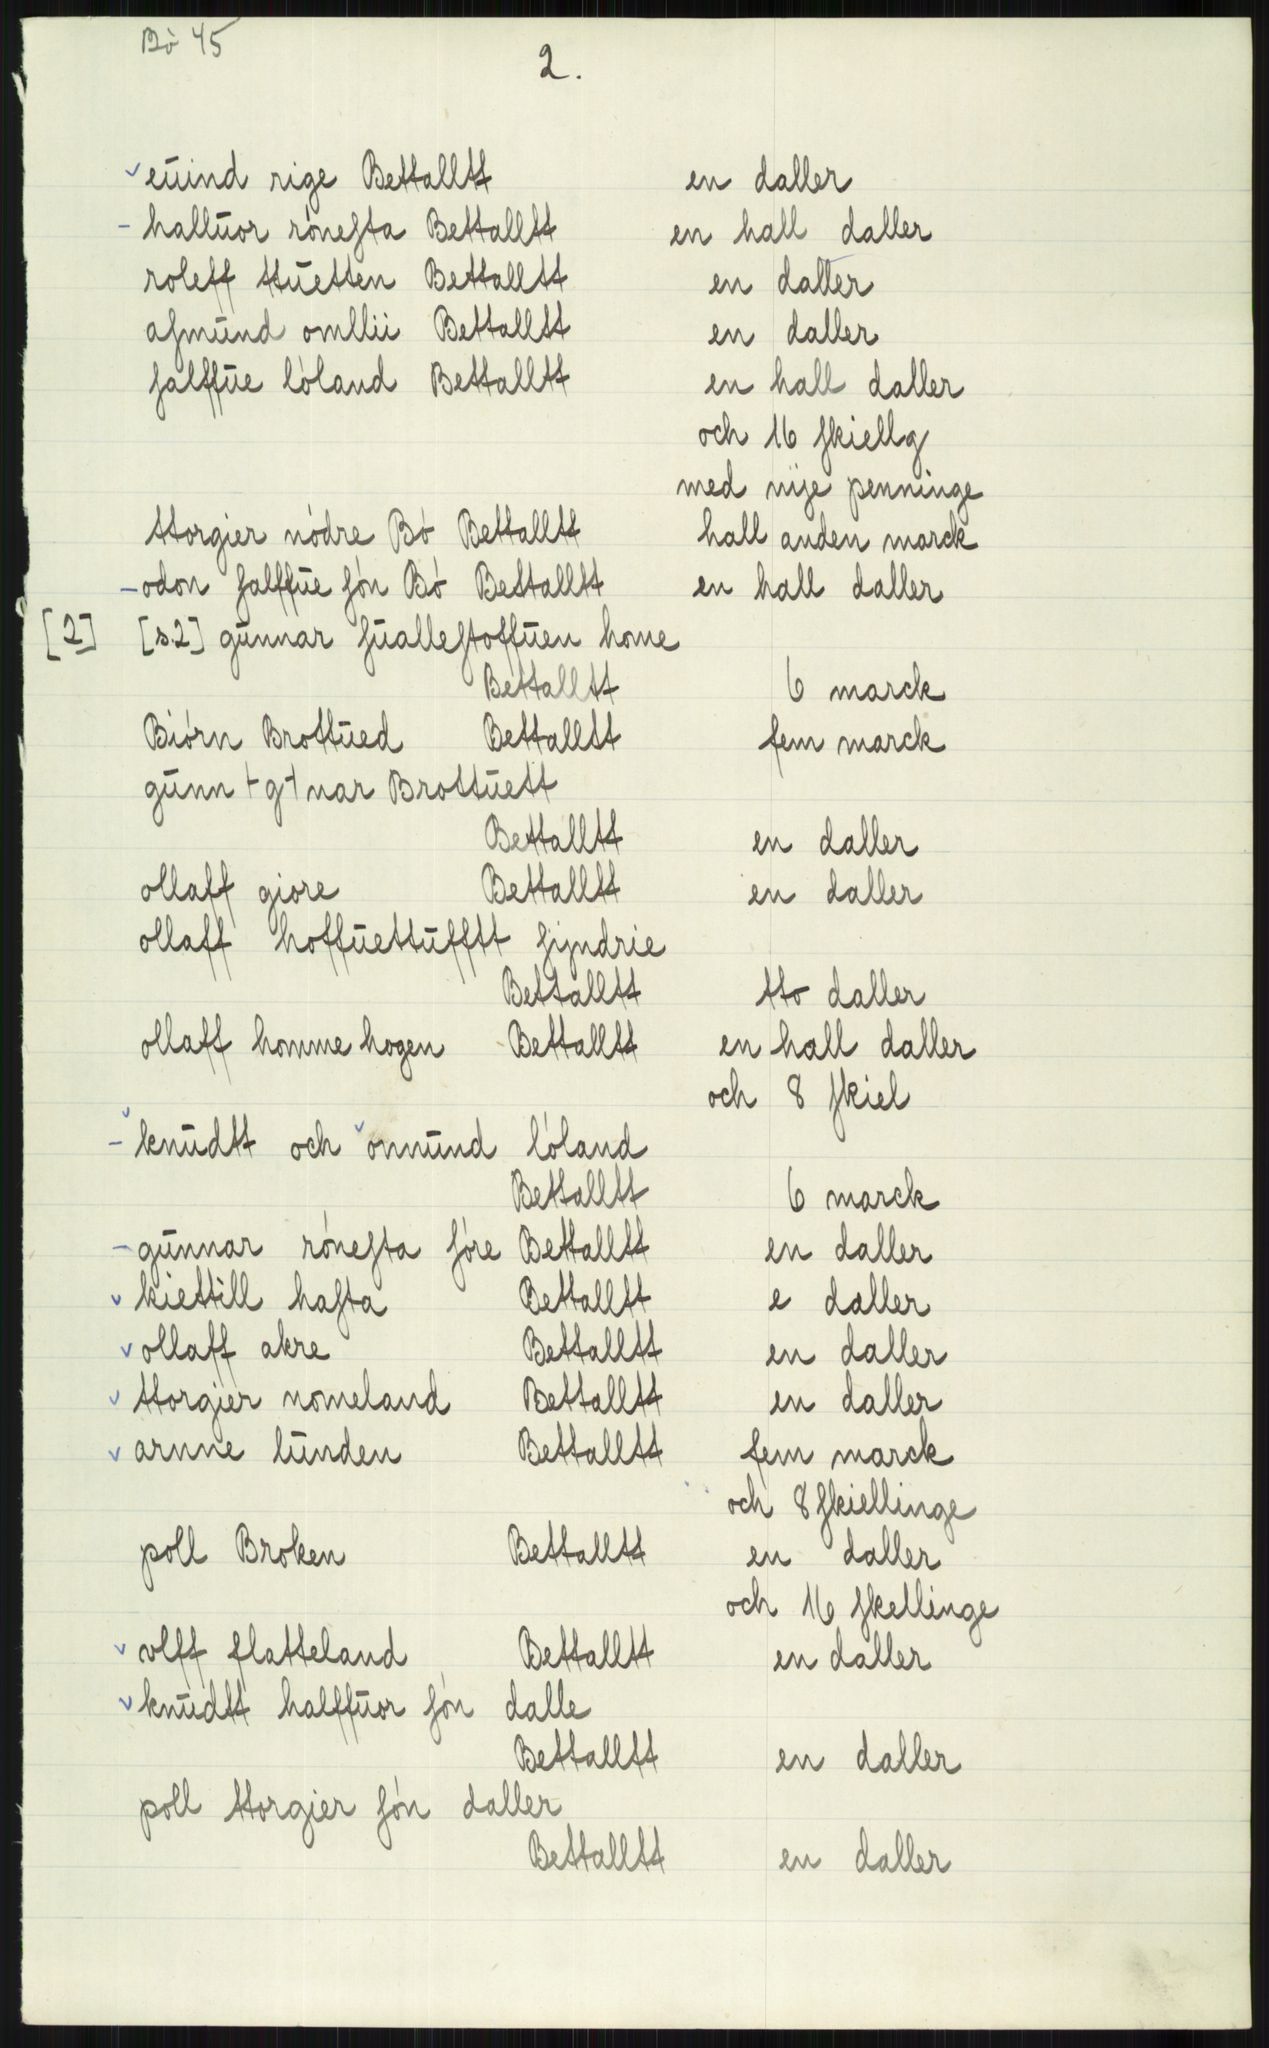 Bò 45
2.
eūind rige Bettalltt en daller
hallūor rónesta Bettalltt en hall daller
roleff ttūetten Bettalltt en daller
asmūnd omllii Bettalltt en daller
salffūe lóland Bettalltt en hall daller
och 16 skiellg
med nije penninge
ttorgier nódre Bó Bettalltt hall anden marck
odon salffūe són Bó Bettalltt en hall daller
[2] [s.2] gūnnar sūallestoffūen home
Bettalltt 6 marck
Biórn Brottūed Bettalltt fem marck
gūnn ⊢g⊣ nar Brottūett
Bettalltt en daller
ollaff giore Bettalltt en daller
ollaff hoffūettūfftt sijndrie
Bettalltt tto daller
ollaff homme hogen Bettalltt en hall daller
och 8 skiel
knūdtt och onnūnd lóland
Bettalltt 6 marck
gūnnar rónesta sóre Bettalltt en daller
kiettill hasta Bettalltt e daller
ollaff akre Bettalltt en daller
ttorgier nomeland Bettalltt en daller
arnne lūnden Bettalltt fem marck
och 8 skiellinge
poll Broken Bettalltt en daller
och 16 skellinge
olff flatteland Bettalltt en daller
knūdtt halffūor són dalle
Bettalltt en daller
poll ttorgier són daller
Bettalltt en daller